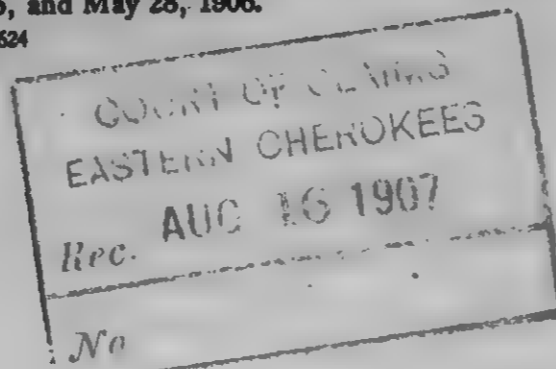 5, and May 28, 1906.
624
COURT OF CLAIMS
EASTERN CHEROKEES
Rec. AUG 16 1907
No